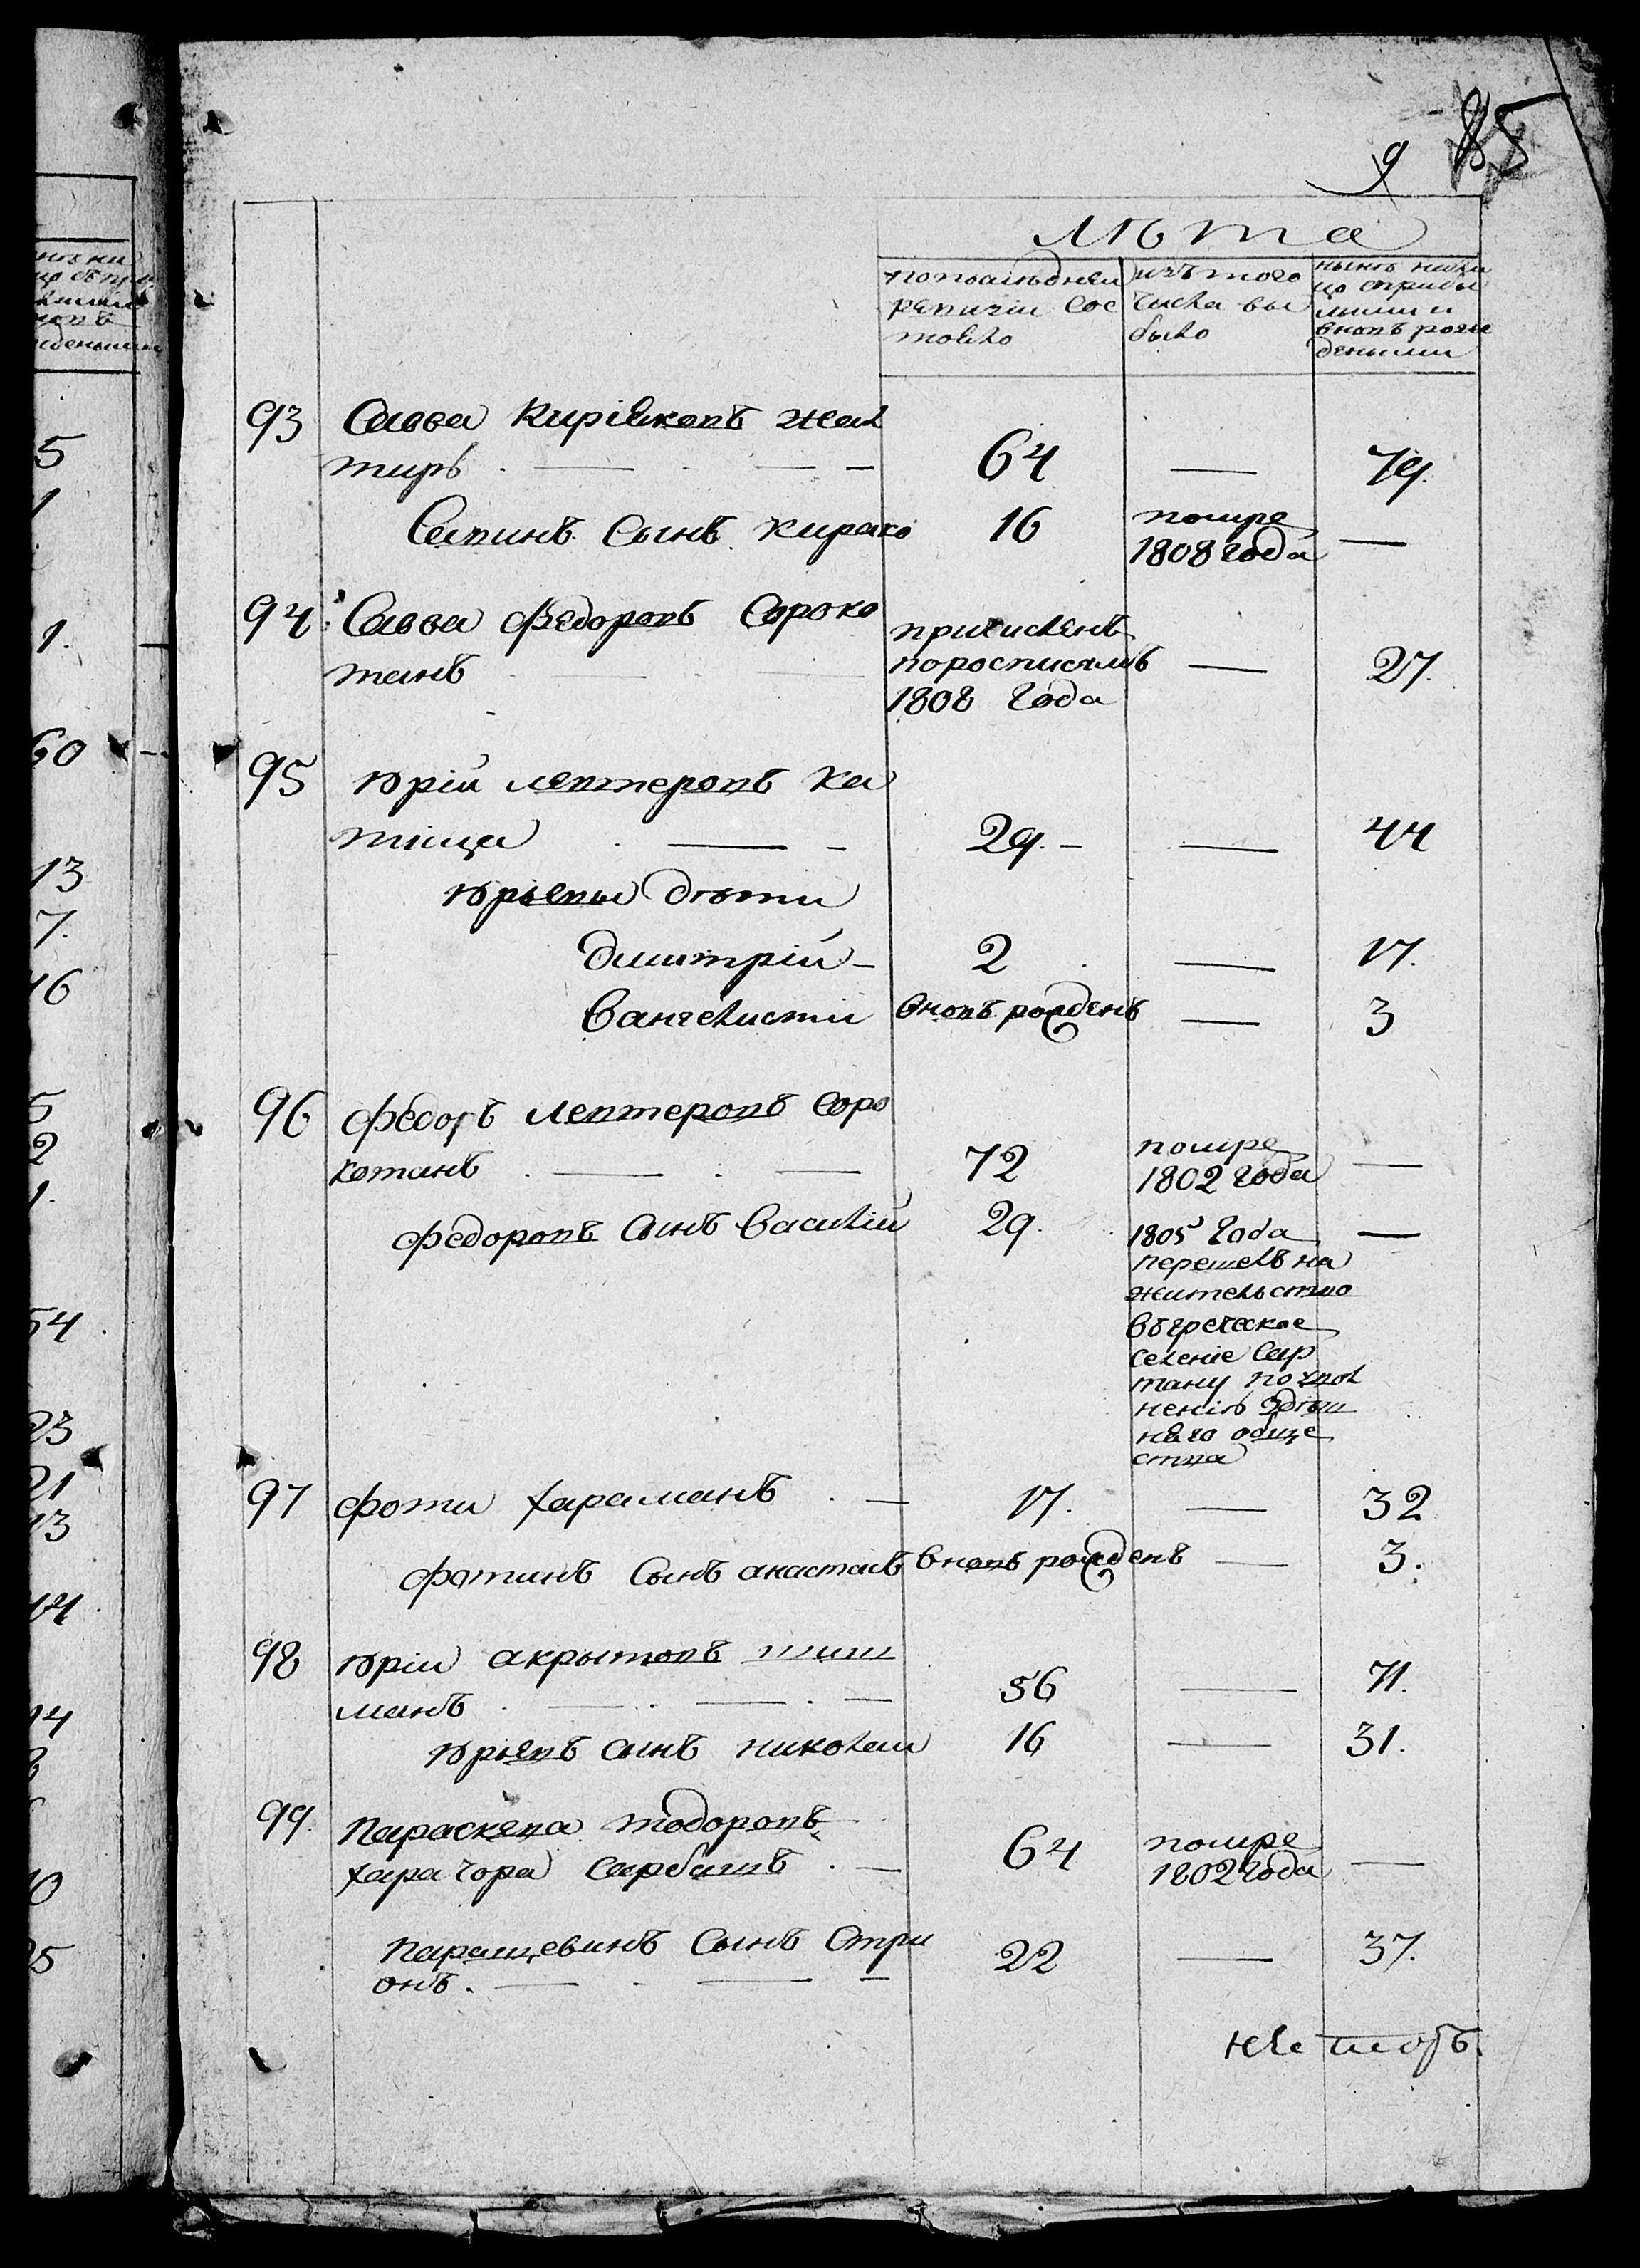 9 85
Лѣта
по последней ревизіи сос тояло
изъ того числа вы было
нынѣ на ли цо сприбы лыми и вновь рож деными
93 Савва Киріяковъ Жал
тиръ 64 — 79.
Савинъ Сынъ Кирако 16 помре 1808 года —
94 Савва Федоровъ Сороко
танъ причисленъ поросписямъ 1808 года — 27.
95 юрій Лефтеровъ Ка
тіща 29. — 44
юрьевы дѣти
дмитрій 2 — 17.
Вангелисти вновь рожденъ — 3
96 Федоръ Лефтеровъ Соро
котанъ 72 помре 1802 года —
Федоровъ Сынъ Василій 29. 1805 года —
перешелъ на
жительство
въ греческое
селеніе Сар
тану по увол
ненію Здеш
няго обще
ства
97 Фоти Хараманъ 17. — 32
Фотинъ Сынъ анастасъ вновь рожденъ — 3.
98 юріи акрытовъ шиш
манъ 56 — 71.
юрьевъ сынъ николаи 16 — 31.
99. Параскева Тодоровъ
Харачора Сарбашъ 64 помре 1802 года —
Паращевинъ Сынъ Стри
онъ. 22 — 37.